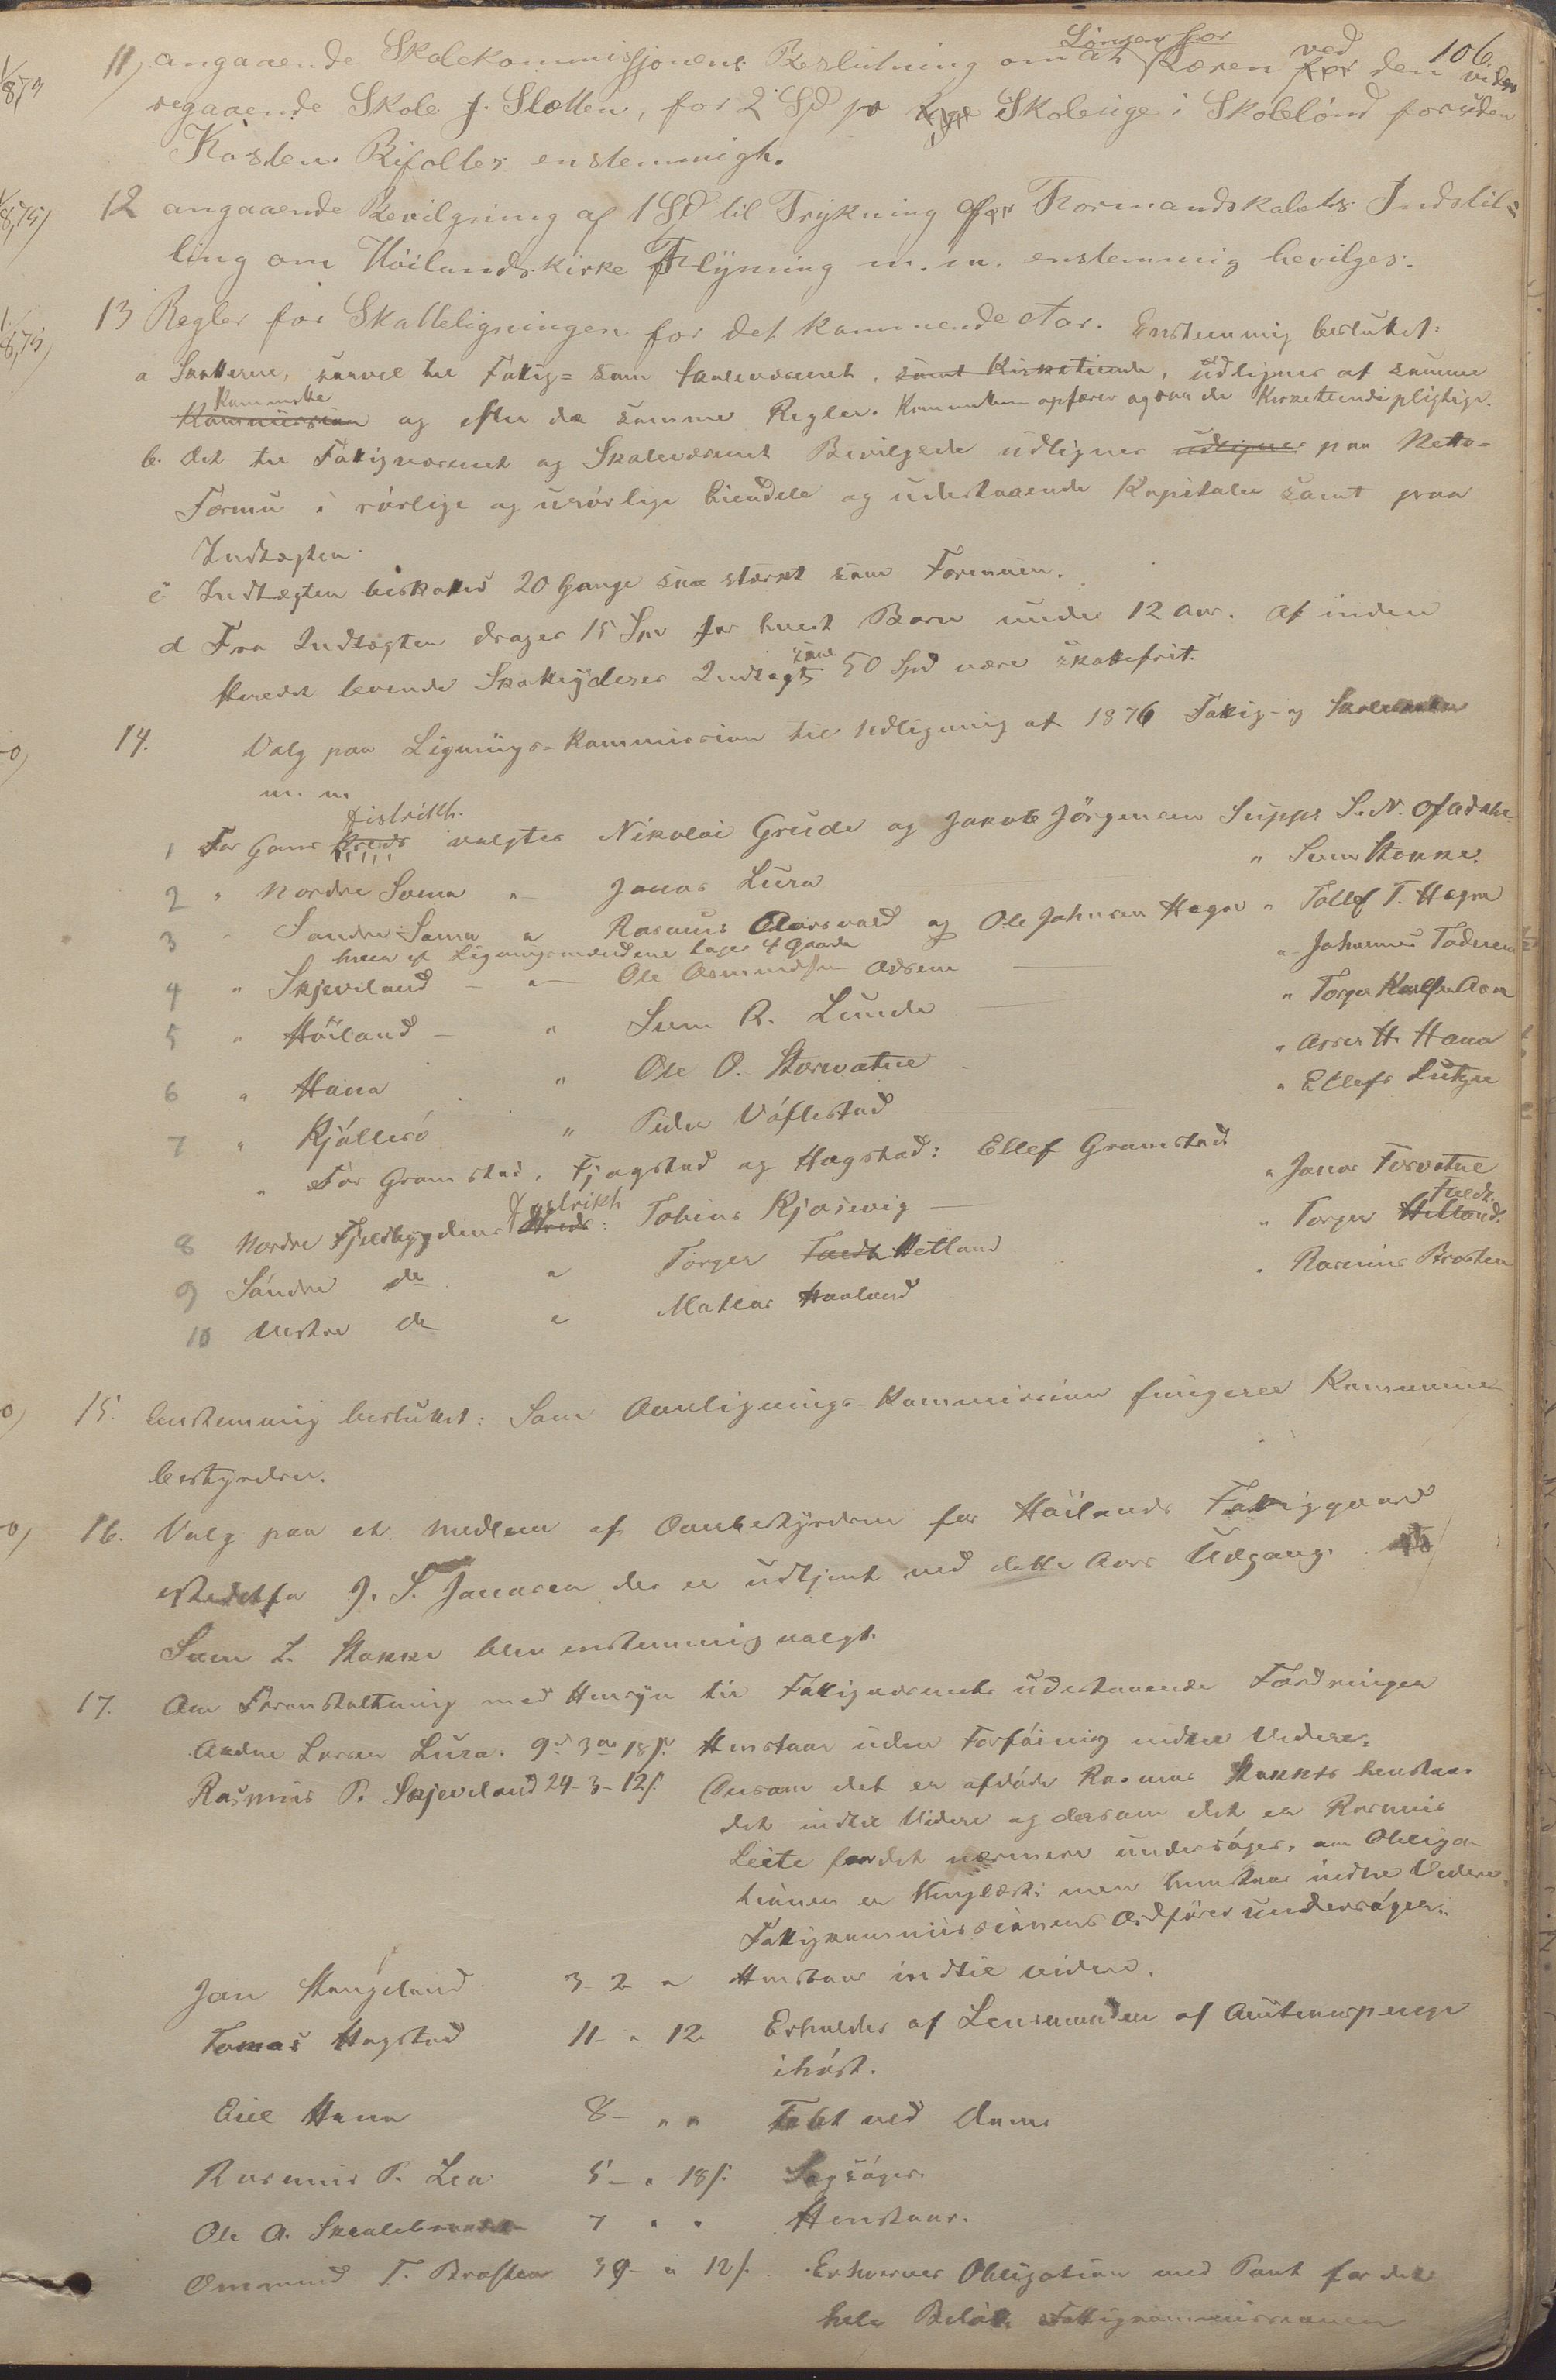 106.
11) angaaende Skolekommissjonens Beslutning om at Lønnen for Læren ved den videre
regaaende Skole J. Sletten, for 2 Spd pr Skoleuge i Skolelønd foruden
Kosten. Bifaltes enstemmigh.
12 angaaende Bevilgning af 1 Spd til Trykning af Formandskabets Indstil=
ling om Höilands kirke Flytning m.m. enstemmig bevilges.
13 Regler for Skatteligningen for det kommende Aar. Enstemmig besluttet:
a Skatterne, saavel til Fattig= som Skolevæsenet, samt Kirketiende, udlignes af samme
Kommission og efter de samme Regler. Kommunen opfører ogsaa de Kirketiendepligtige.
b. Det til Fattigvæsenet og Skolevæsenet Bevilgede udlignes udlignes paa Netto-
Formu i rörlige og urörlige Eiendele og udestaaende Kapitaler samt paa
Indtægten.
c Indtægten beskattes 20 Gange saa stærkt som Formuen.
d Fra Indtægten drages 15 Spd for hvert Barn under 12 Aar. Af inden
Heredet levende Skatteyderes Indtægt skal 50 Spd være skattefrit.
14. Valg paa Lignings-Kommission til Udligning af 1876 Fattig- og Skoleskatter
m. m.
distrikh.
1 For Gans Kreds valgtes Nikolai Grude og Jakob Jörgensen Supps S. N. Ofadahl.
2 " Nordre Soma " Jonas Lura " Sven Stokke.
3 " Söndre Soma " Rasmus Aarsvold og Ole Johnsen Hegre " Tollef T. Hegre
hver af Ligningsmændene tager 4 Gaarde
4 " Skjeveland - " Ole Osmundsen Adsene " Johannes Todnem
5 " Höiland - " Sven R. Lunde " Torger
6 " Hana " Ole O. Storvatne " Asser H. Hana
7 " Kjöllesö " Peder Vöflestad " Ellefs Lutsje
" For Gramstad, Fjogstad og Hogstad: Ellef Gramstad. " Jonas Forvatne
8 Nordre Fjeldbygdens Kreds distrikh: Tobias Kjosevig " Torger Hetland Tveth.
9 Söndre do " Torger Tveth Hetland " Rasmus Brosten
10 Vestre do " Mathias Haaland
15. Enstemmig besluttet: Som Overlignings-Kommission fungerer Kommune
bestyrelsen.
16. Valg paa et Medlem af Overbestyrelsen for Höilands Fattiggaard
istedetfor J. S. Jonasen der er udtjent ved dette Aars Udgang.
Sven L. Stokke blev enstemmig valgt.
17. Om Foranstaltning med Hensyn til Fattigvæsenets udestaaende Fordringer
Andne Larsen Lura. 9 3 18 s. Henstaar uden Forföining indtil Videre.
Rasmus P. Skjeveland 24-3-12 s. Dersom det er afdöde Rasmus Stokkes henstaar
det indtil Videre og dersom det er Rasmus
Leite faar det nærmere undersöges, om Obliga-
tionen er thinglæst: men henstaar indtil Videre.
Fattigkommissionens Ordförer undersöger.
Jon Stangeland 3- 2 " Henstaar indtil videre.
Tomas Hogstad 11- " 12. Erholdes af Lensmanden af Auktionspenge
ihöst.
Eiel Hana 8- " " Tabt ved Dom
Rasmus P. Lea 5- " 18 s. Sagsöges.
Ole A. 7 " " Henstaar.
Omund T. Brosten 39- " 12 s. Erhverves Obligation med Pant for det
hele Belöb. Fattigkommissionen